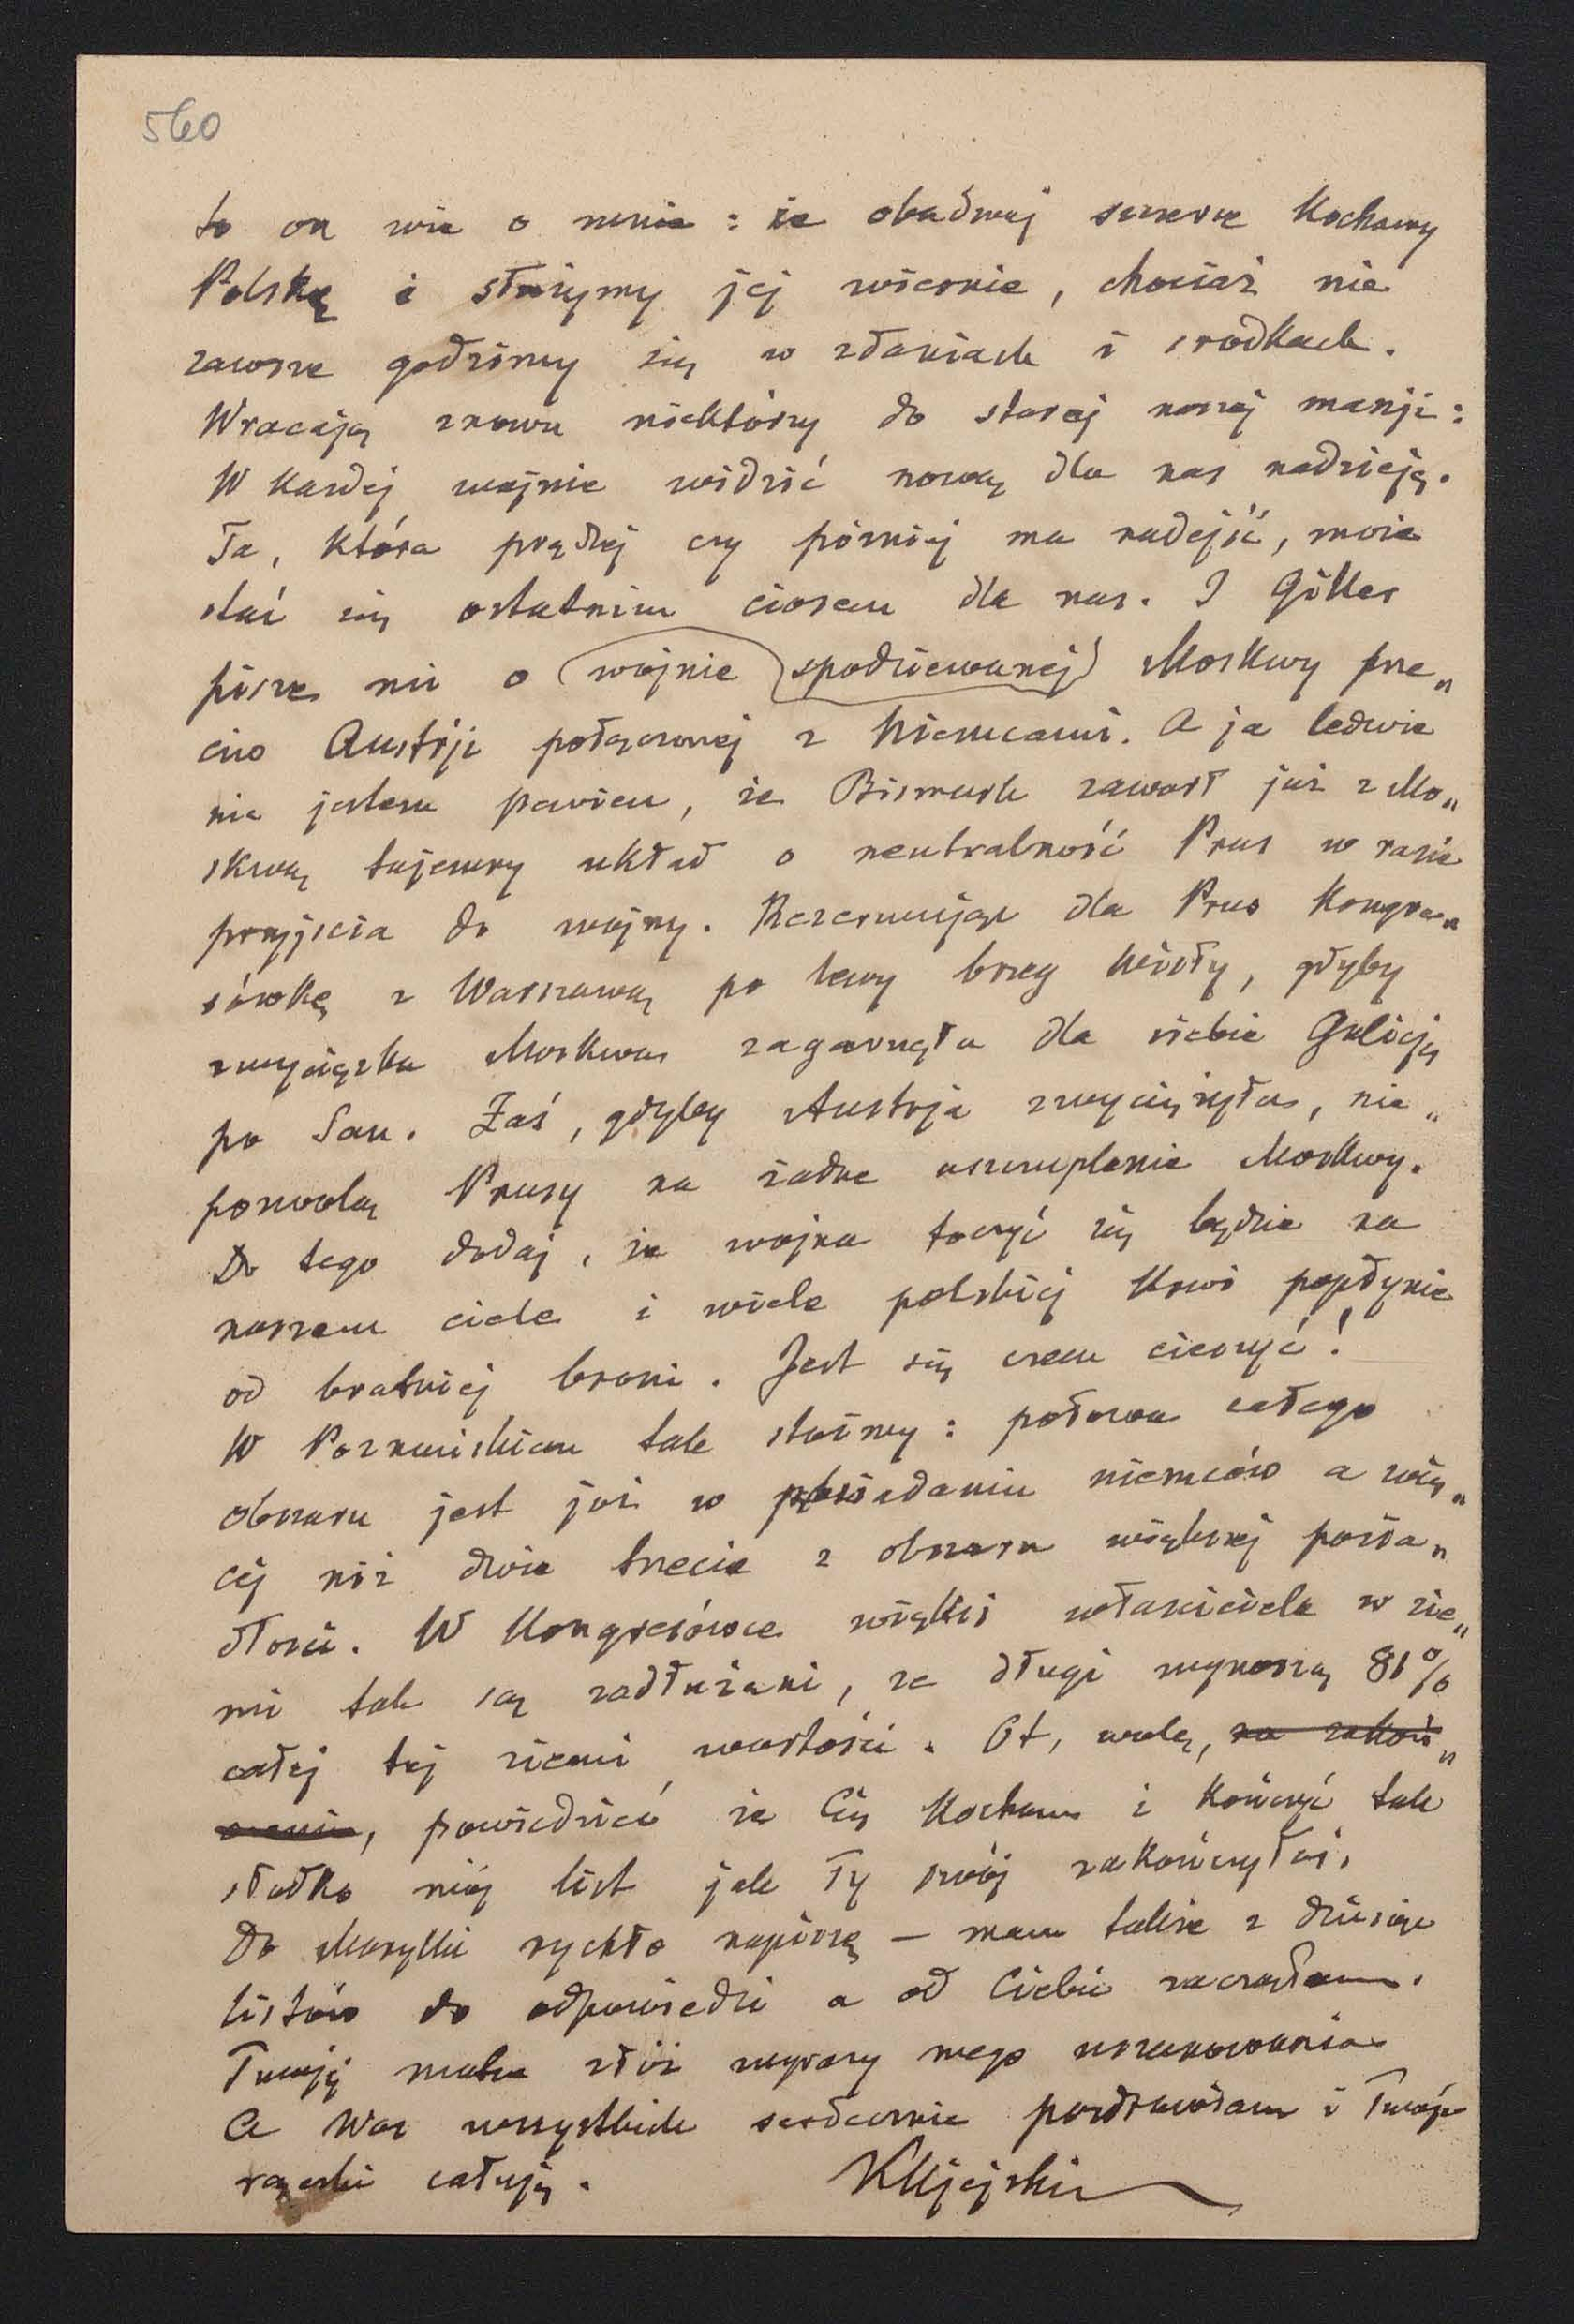 560
to on wie o mnie: że obadwaj szczerze kochamy
Polskę i służymy jej wiernie, chociaż nie
zawsze godzimy się w zdaniach i środkach.
Wracają znowu niektórzy do starej naszej manji:
W każdej wojnie widzieć nową dla nas nadzieję.
Ta, która prędzej czy później ma nadejść, może
stać się ostatnim ciosem dla nas. I Giller
pisze mi o wojnie spodziewanej Moskwy prze„
ciw Austrji połączonej z Niemcami. A ja ledwie
nie jestem pewien, że Bismark zawarł już z Mo„
skwą tajemny układ o neutralność Prus w razie
przyjścia do wojny. Rezerwując dla Prus Kongre„
sówkę z Warszawą po lewy brzeg Wisły, gdyby
zwycięzka Moskwa zagarnęła dla siebie Galicję
po San. Zaś, gdyby Austrja zwyciężyła, nie„
pozwolą Prusy na żadne uszczuplenie Moskwy.
Do tego dodaj, że wojna toczyć się będzie na
naszem ciele i wiele polskiej krwi popłynie
od bratniej broni. Jest się czem cieszyć!
W Poznańskiem tak stoimy: połowa całego
obszaru jest już w posiadaniu niemców a wię„
cej niż dwie trzecie z obszaru większej posia„
dłości. W Kongresówce więksi właściciele w zie„
mi tak są zadłużeni, że długi wynoszą 81%
całej tej ziemi wartości. Ot, wolę, na zakoń„
czenie, powiedzieć że Cię kocham i kończyć tak
słodko mój list jak Ty swój zakończyłaś.
Do Marylki rychło napiszę — mam także z dziesięć
listów do odpowiedzi a od Ciebie zacząłem.
Twojej matce złóż wyrazy mego uszanowania
A Was wszystkich serdecznie pozdrawiam i Twoje
rączki całuję. KUjejski